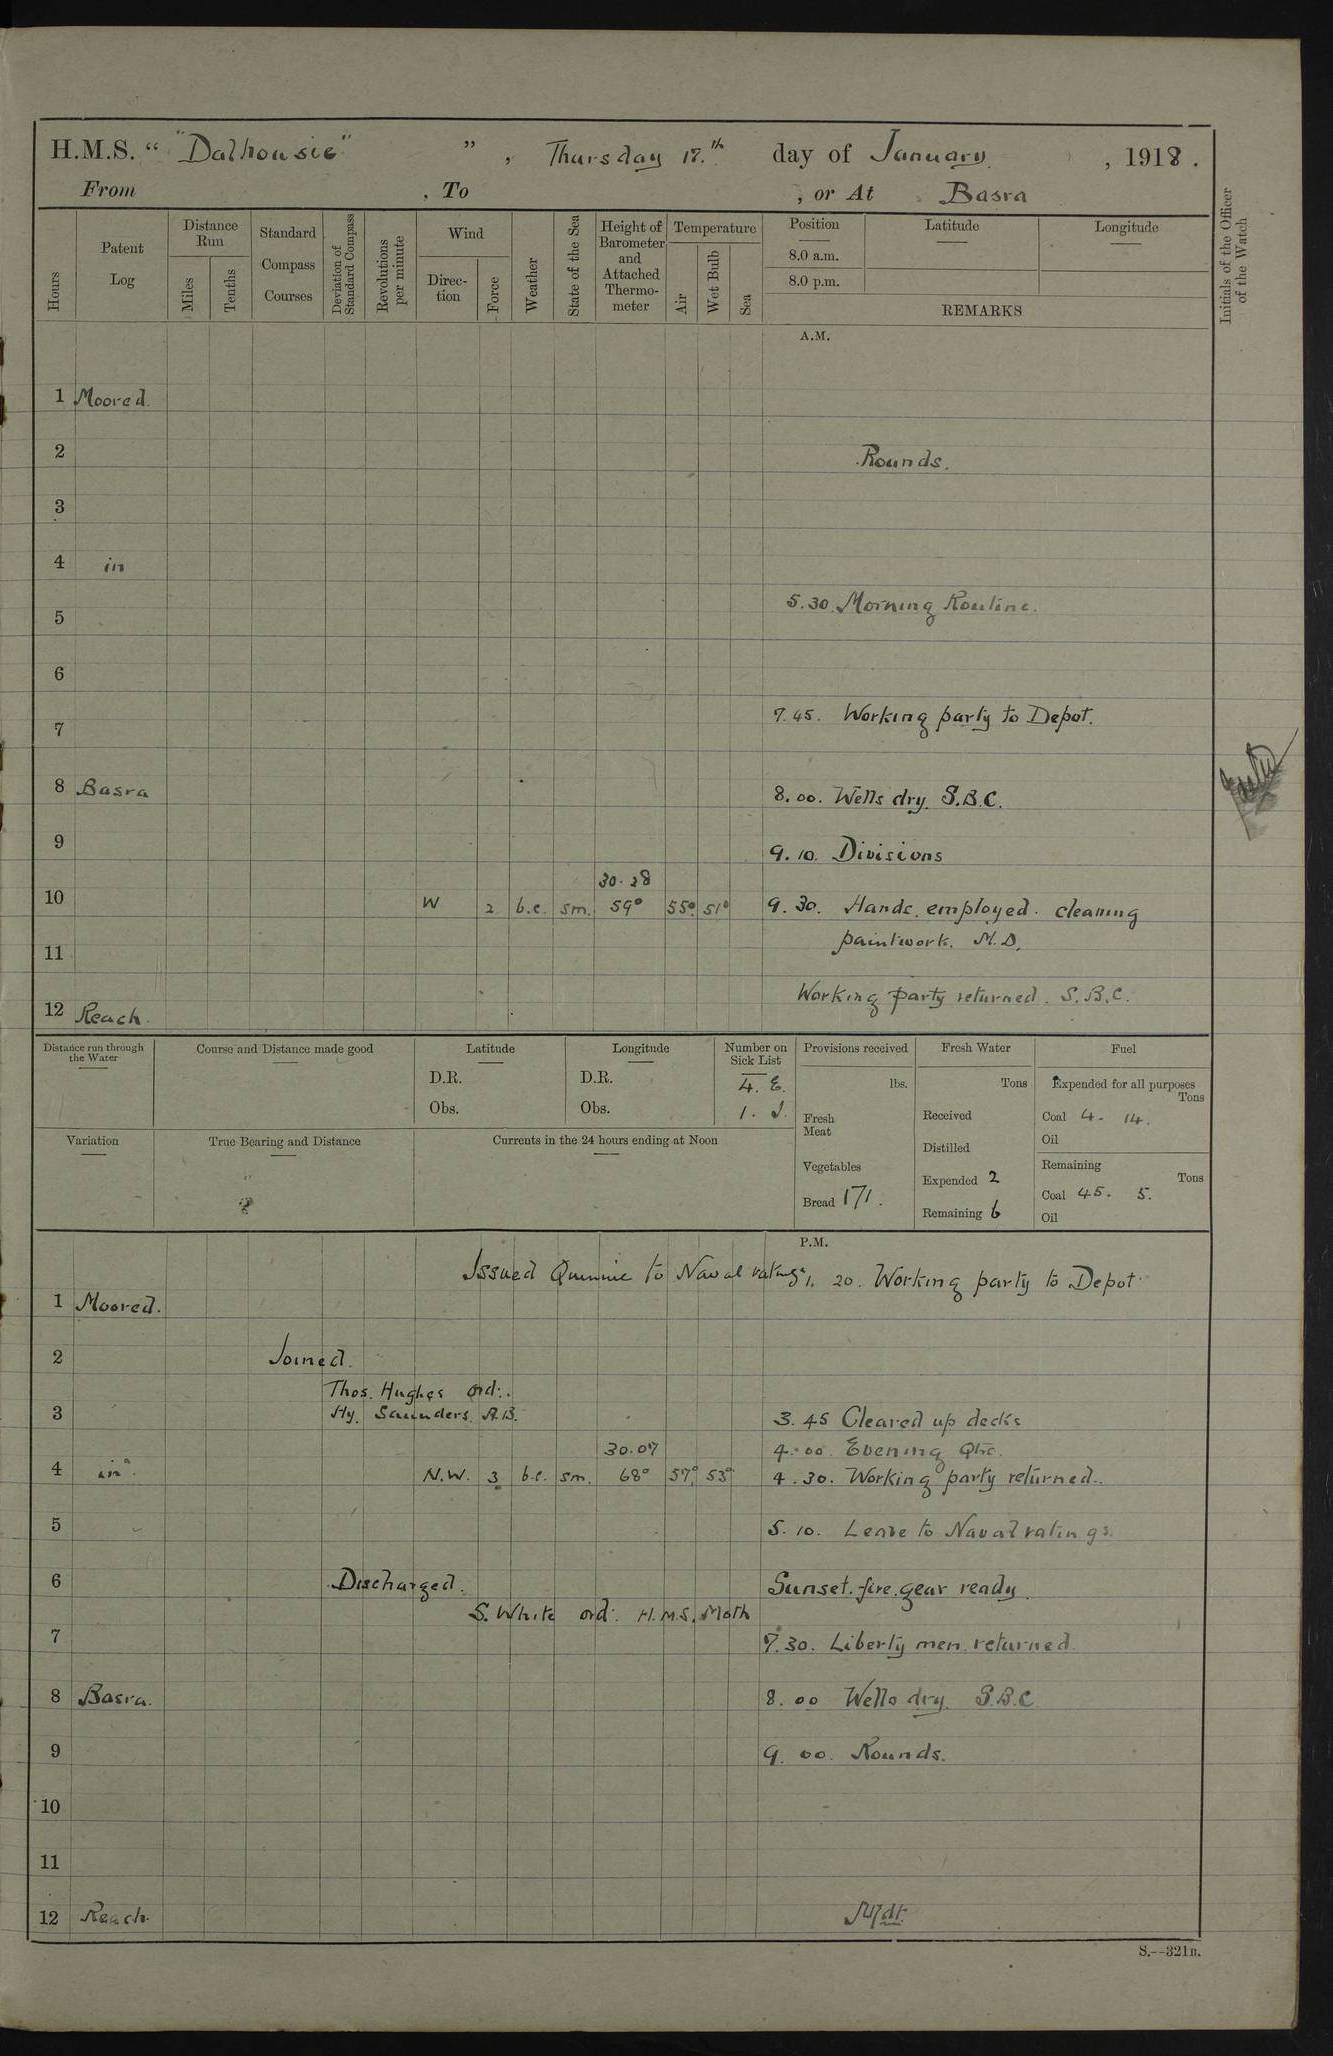 H.M.S. “ "Dalhousie" ” , Thursday 17.th day of January , 1918 .
From , To , or At Basra
Hours
Patent Log
Distance Run
Miles
Tenths
Standard Compass Courses
Deviation of Standard Compass
Revolutions per minute
Wind
Direc-tion
Force
Weather
State of the Sea
Height of Barometer and Attached Thermo-meter
Temperature
Air
Wet Bulb
Sea
Position
8.0 a.m.
8.0 p.m.
Latitude
Longitude
REMARKS
Initials of the Officer of the Watch
A.M.
1 Moored.
2 Rounds.
3
4 in
5.30. Morning Routine.
5
6
7.45. Working party to Depot.
7
8 Basra 8.00. Wells dry. S.B.C.
9 9.10. Divisions
30.28
10 W 2 b.c. sm. 59° 55° 51° 9.30. Hands employed cleaning
11 paintwork. M.D.
Working party returned. S.B.C.
12 Reach.
Distance run through the Water
Course and Distance made good
Latitude
D.R.
Obs.
Longitude
D.R.
Obs.
Number on Sick List
4. E.
1. J.
Provisions received
lbs.
Fresh Meat
Vegetables
Bread 171.
Fresh Water
Tons
Received
Distilled
Expended 2
Remaining 6
Fuel
Expended for all purposes
Tons
Coal 4 - 14.
Oil
Remaining
Tons
Coal 45. 5.
Oil
Variation
True Bearing and Distance
Currents in the 24 hours ending at Noon
P.M.
Issued Quinine to Naval ratings 1. 20. Working party to Depot
1 Moored.
2 Joined.
Thos. Hughes ord:.
3 Hy. Saunders. A.B. 3.45 Cleared up decks
30.07 4.00 Evening Qtrs.
4 in N.W. 3 b.c. sm. 68° 57° 53° 4.30. Working party returned.
5 5.10. Leave to Naval ratings.
6 Discharged. Sunset. fire gear ready.
S. White ord: H.M.S. Moth
7 7.30. Liberty men returned
8 Basra. 8.00 Wells dry. S.B.C
9 9.00. Rounds.
10
11
12 Reach. M/dt.
S.--321B.